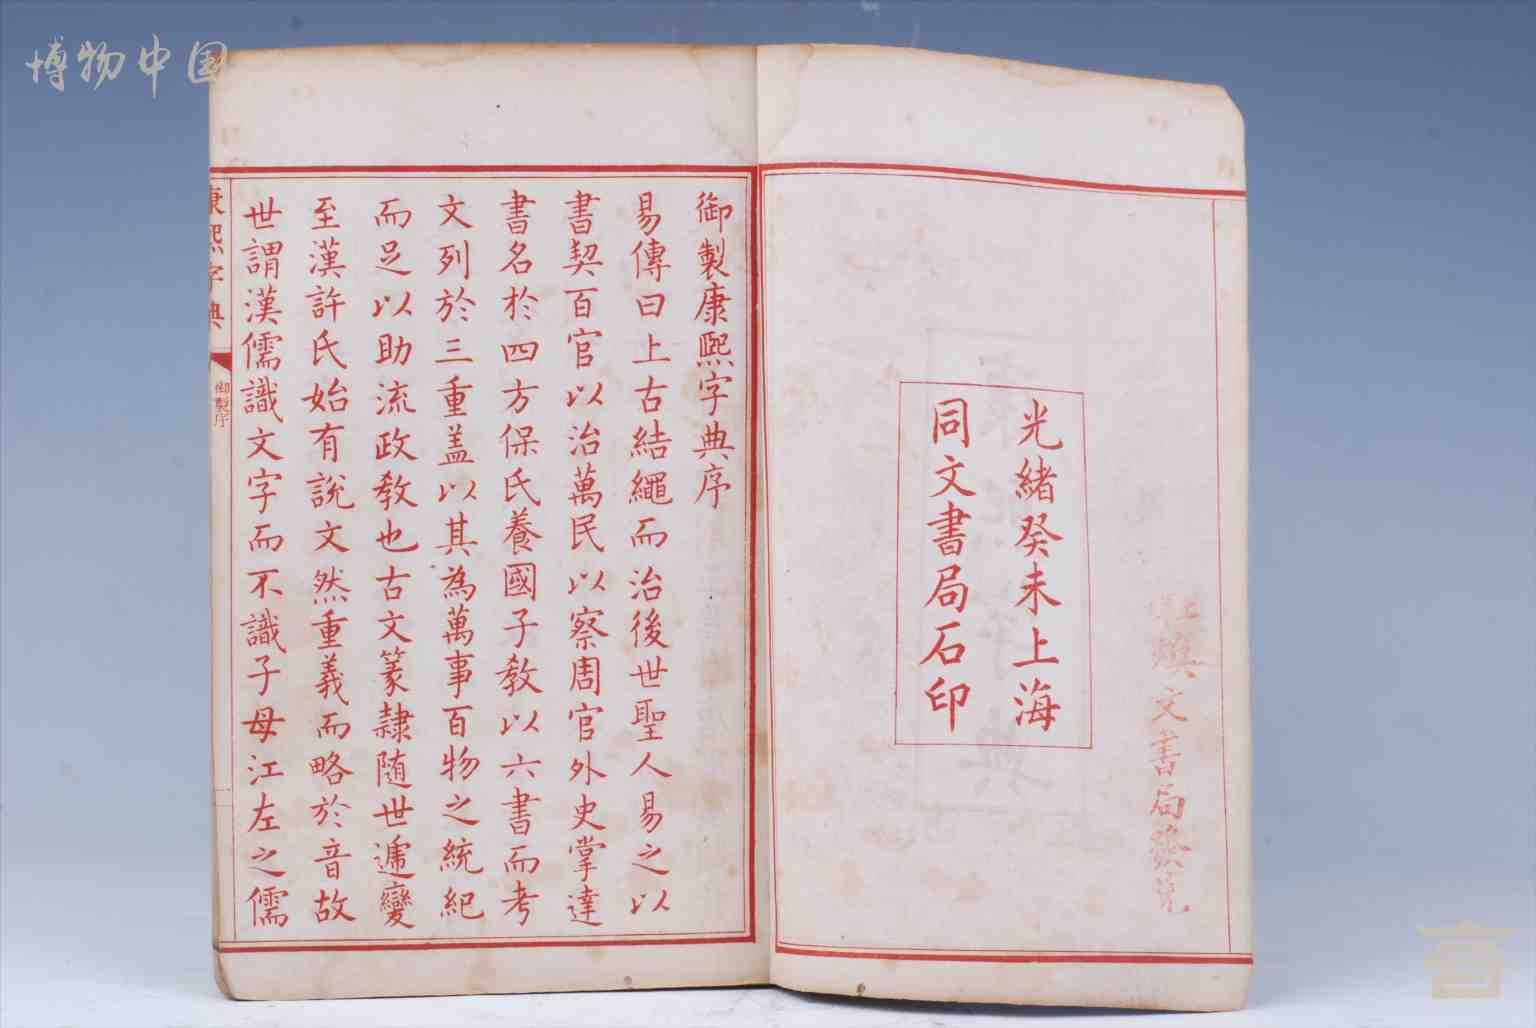 博物中国
光緒癸未上海
同文書局石印
文書局發兌
御製康熙字典序
易傳曰上古結繩而治後世聖人易之以
書契百官以治萬民以察周官外史掌達
書名於四方保氏養國子教以六書而考
文列於三重盖以其為萬事百物之統紀
而足以助流政教也古文篆隸随世遞變
至漢許氏始有說文然重義而略於音故
世謂漢儒識文字而不識子母江左之儒
康熙字典
御製序